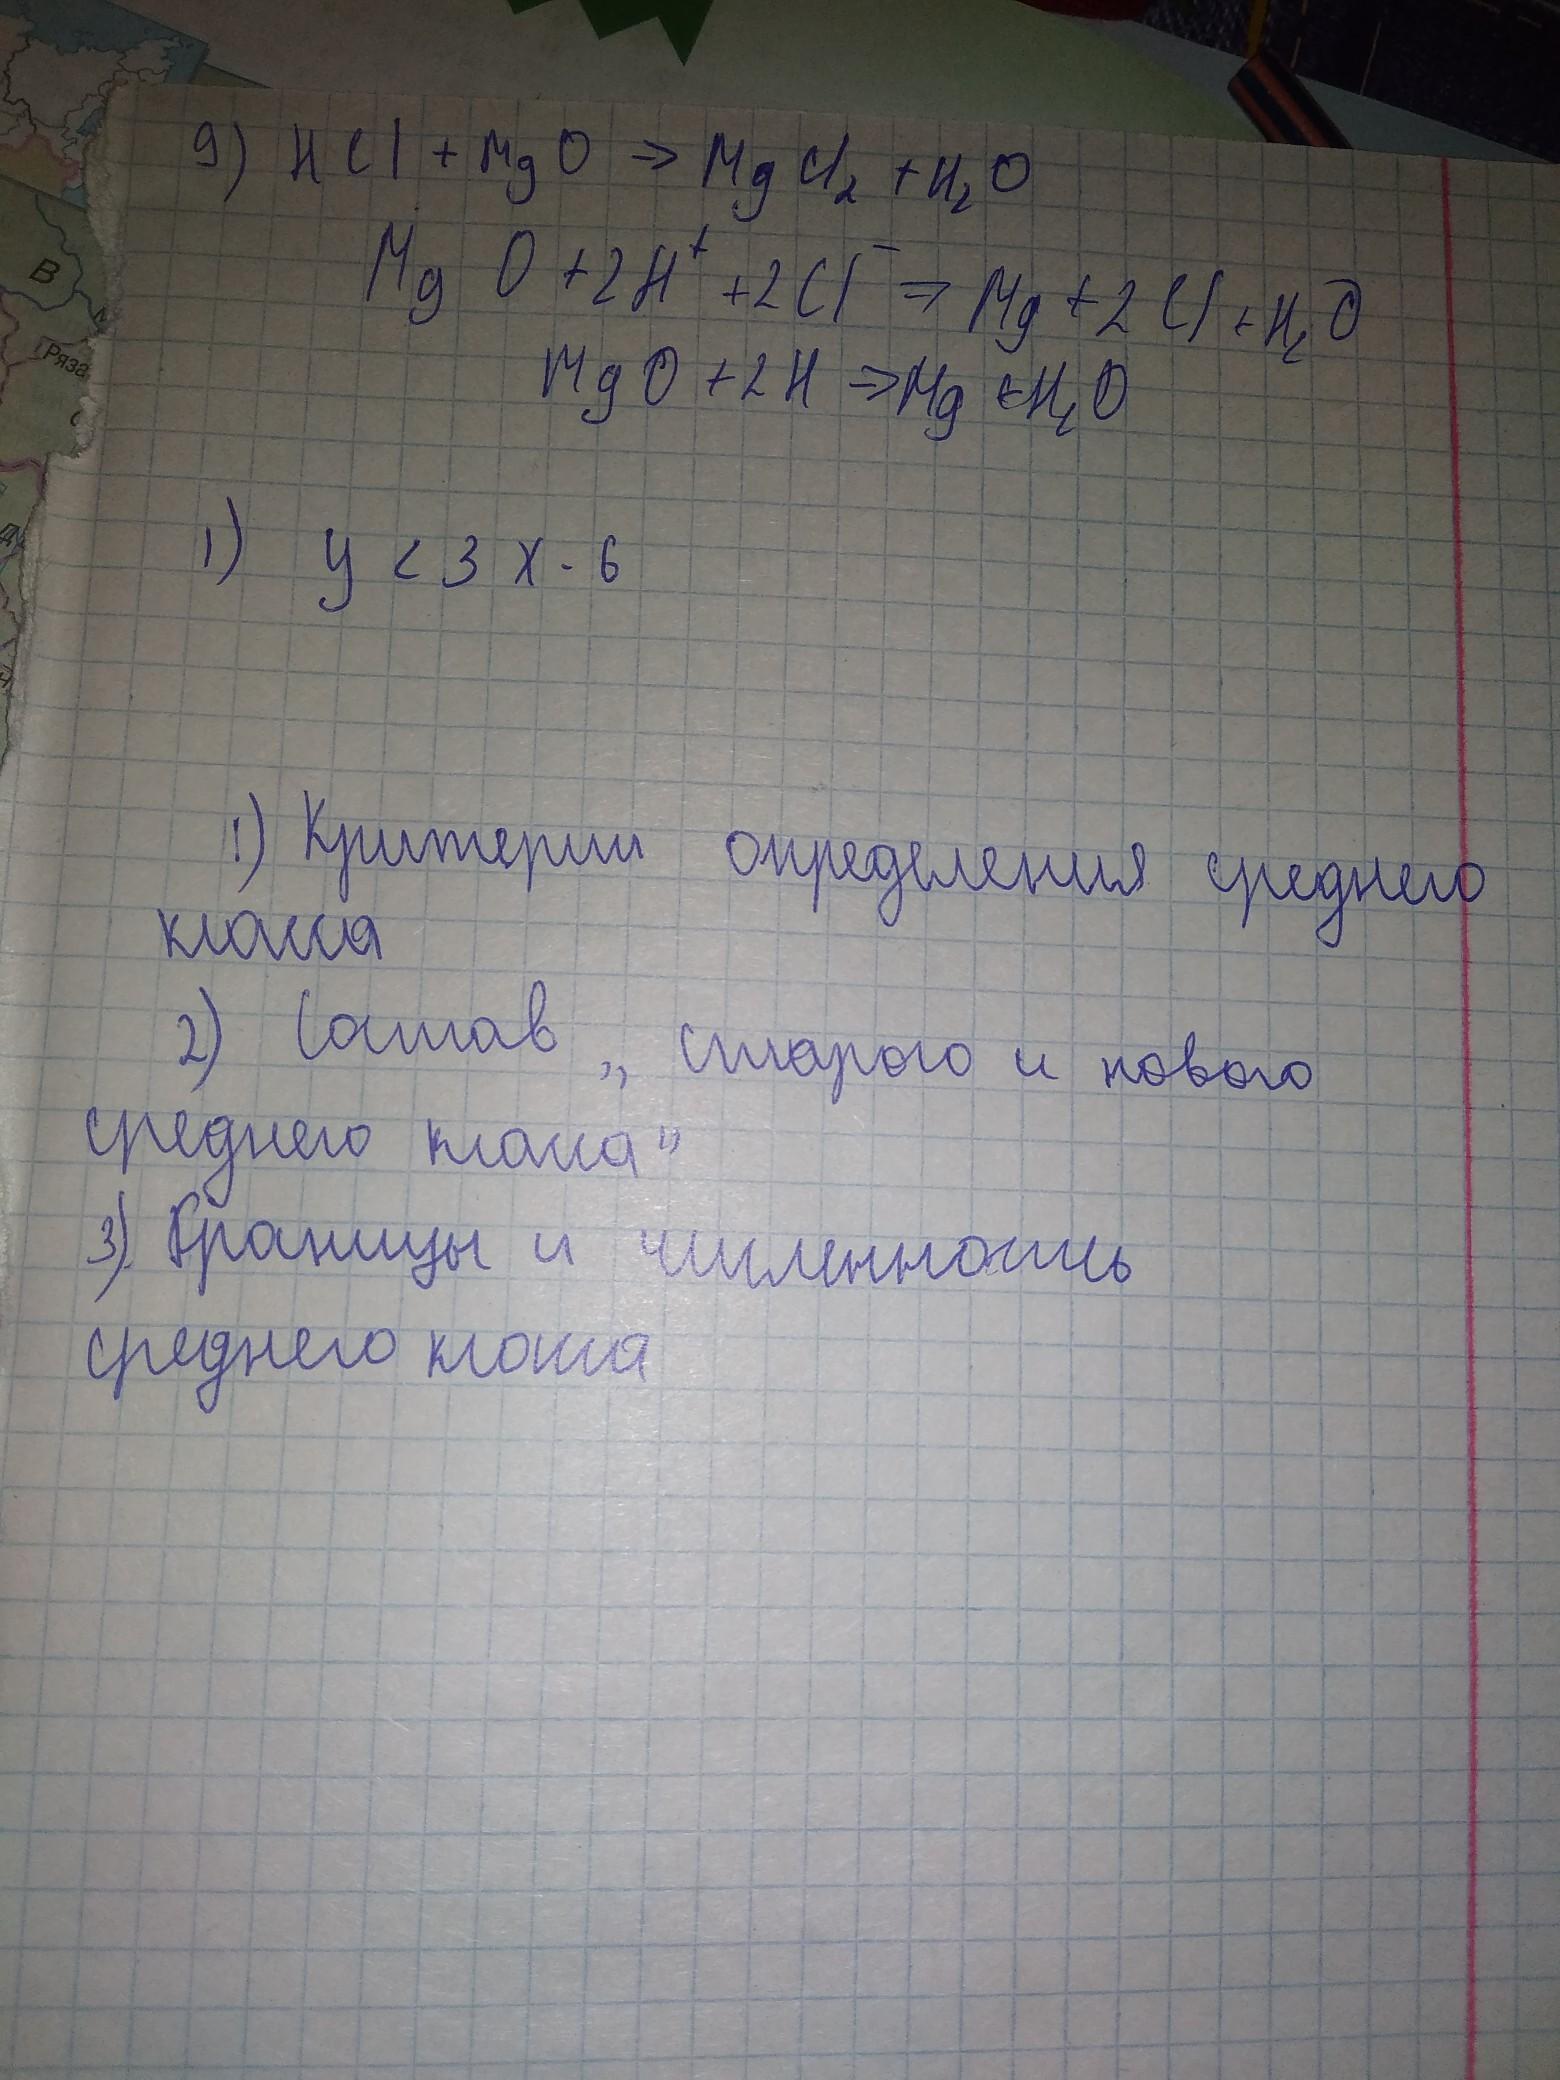 9) HCl + MgO ⇒ MgCl₂ + H₂O
MgO + 2H⁺ + 2Cl⁻ ⇒ Mg + 2Cl + H₂O
MgO + 2H ⇒ Mg + H₂O
В
Ряза
1) y < 3x - 6
1) Критерии определения среднего
класса
2) Состав „старого и нового
среднего класса"
3) Границы и численность
среднего класса